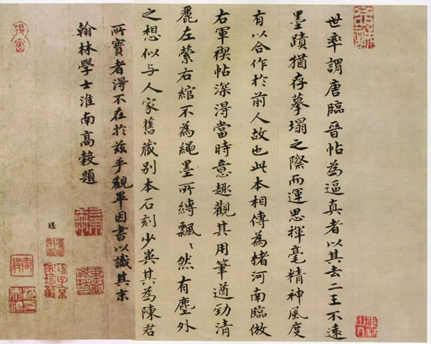 世率謂唐臨晉帖為逼真者以其去二王不遠
墨蹟猶存摹搨之際而運思揮毫精神風度
有以合作於前人故也此本相傳為褚河南臨倣
右軍禊帖深得當時意趣觀其用筆遒勁清
麗左縈右綰不為繩墨所縛飄〻然有塵外
之想似与人家舊藏別本石刻少異其為陳君
所寶者得不在於茲乎觀畢因書以識其末
翰林學士淮南高穀題